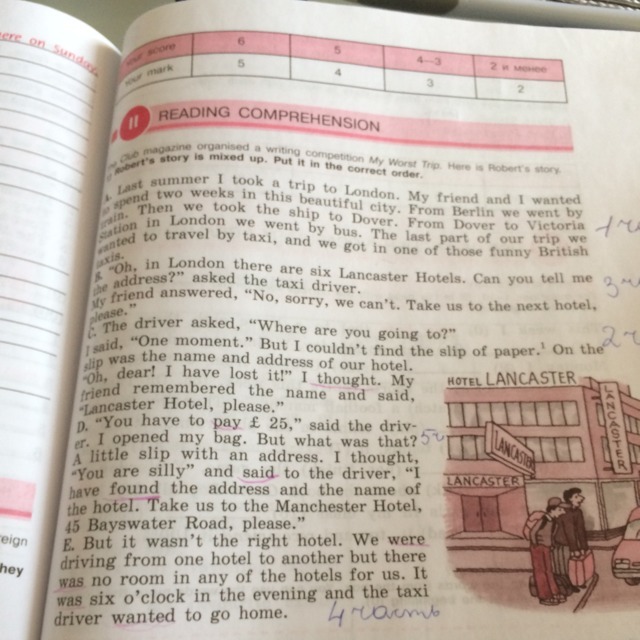 ere on Sunday.
your score 6 5 4—3 2 и менее
your mark 5 4 3 2
II READING COMPREHENSION
Club magazine organised a writing competition My Worst Trip. Here is Robert's story.
Robert's story is mixed up. Put it in the correct order.
A. Last summer I took a trip to London. My friend and I wanted
to spend two weeks in this beautiful city. From Berlin we went by
train. Then we took the ship to Dover. From Dover to Victoria
Station in London we went by bus. The last part of our trip we
wanted to travel by taxi, and we got in one of those funny British
taxis.
B. “Oh, in London there are six Lancaster Hotels. Can you tell me
the address?” asked the taxi driver.
My friend answered, “No, sorry, we can't. Take us to the next hotel,
please.”
C. The driver asked, “Where are you going to?”
I said, “One moment.” But I couldn't find the slip of paper.¹ On the
slip was the name and address of our hotel.
“Oh, dear! I have lost it!” I thought. My
friend remembered the name and said,
“Lancaster Hotel, please.”
D. “You have to pay £ 25,” said the driv-
er. I opened my bag. But what was that?
A little slip with an address. I thought,
“You are silly” and said to the driver, “I
have found the address and the name of
the hotel. Take us to the Manchester Hotel,
45 Bayswater Road, please.”
E. But it wasn't the right hotel. We were
driving from one hotel to another but there
was no room in any of the hotels for us. It
was six o'clock in the evening and the taxi
driver wanted to go home.
4 часть
1
3
2
5
HOTEL LANCASTER
LANCASTER
LANCASTER
LANCASTER
reign
hey